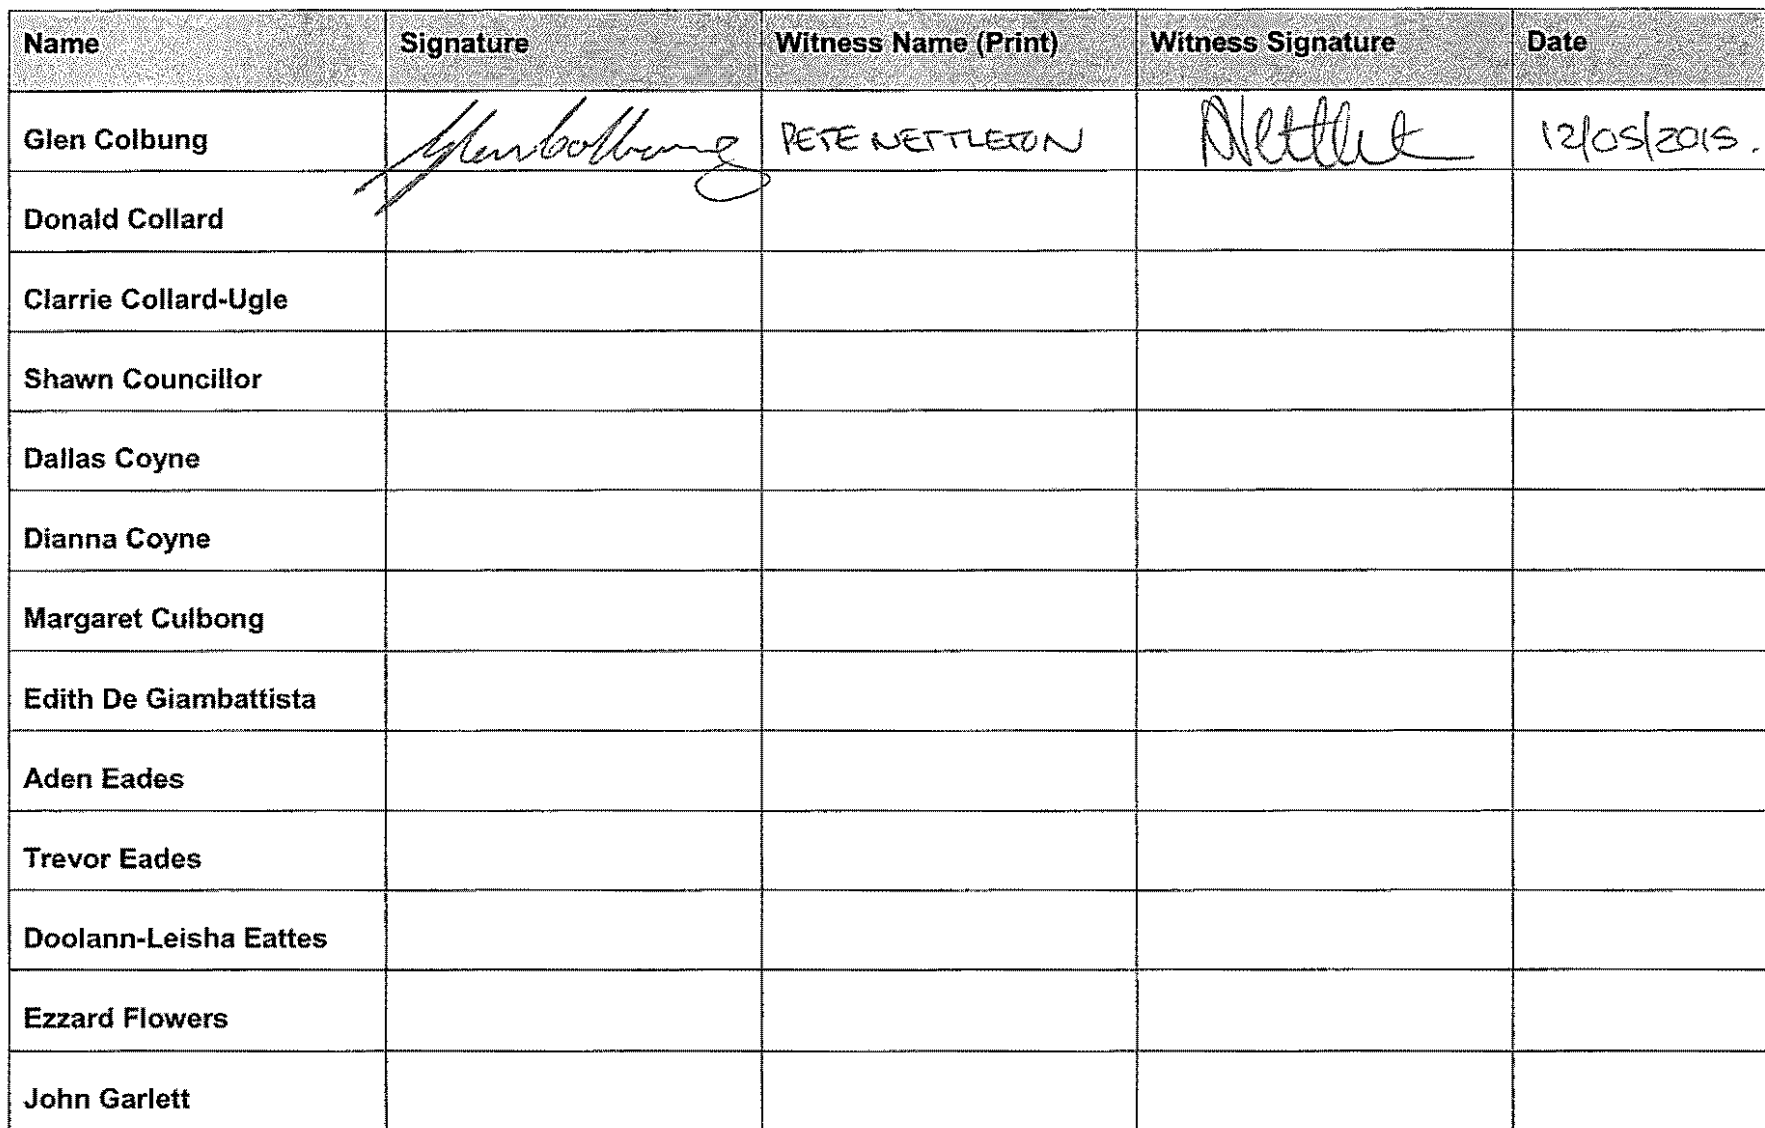 Name Signature Witness Name (Print) Witness Signature Date
Glen Colbung Glen Colbung PETE NETTLETON 12/05/2015.
Donald Collard
Clarrie Collard-Ugle
Shawn Councillor
Dallas Coyne
Dianna Coyne
Margaret Culbong
Edith De Giambattista
Aden Eades
Trevor Eades
Doolann-Leisha Eattes
Ezzard Flowers
John Garlett